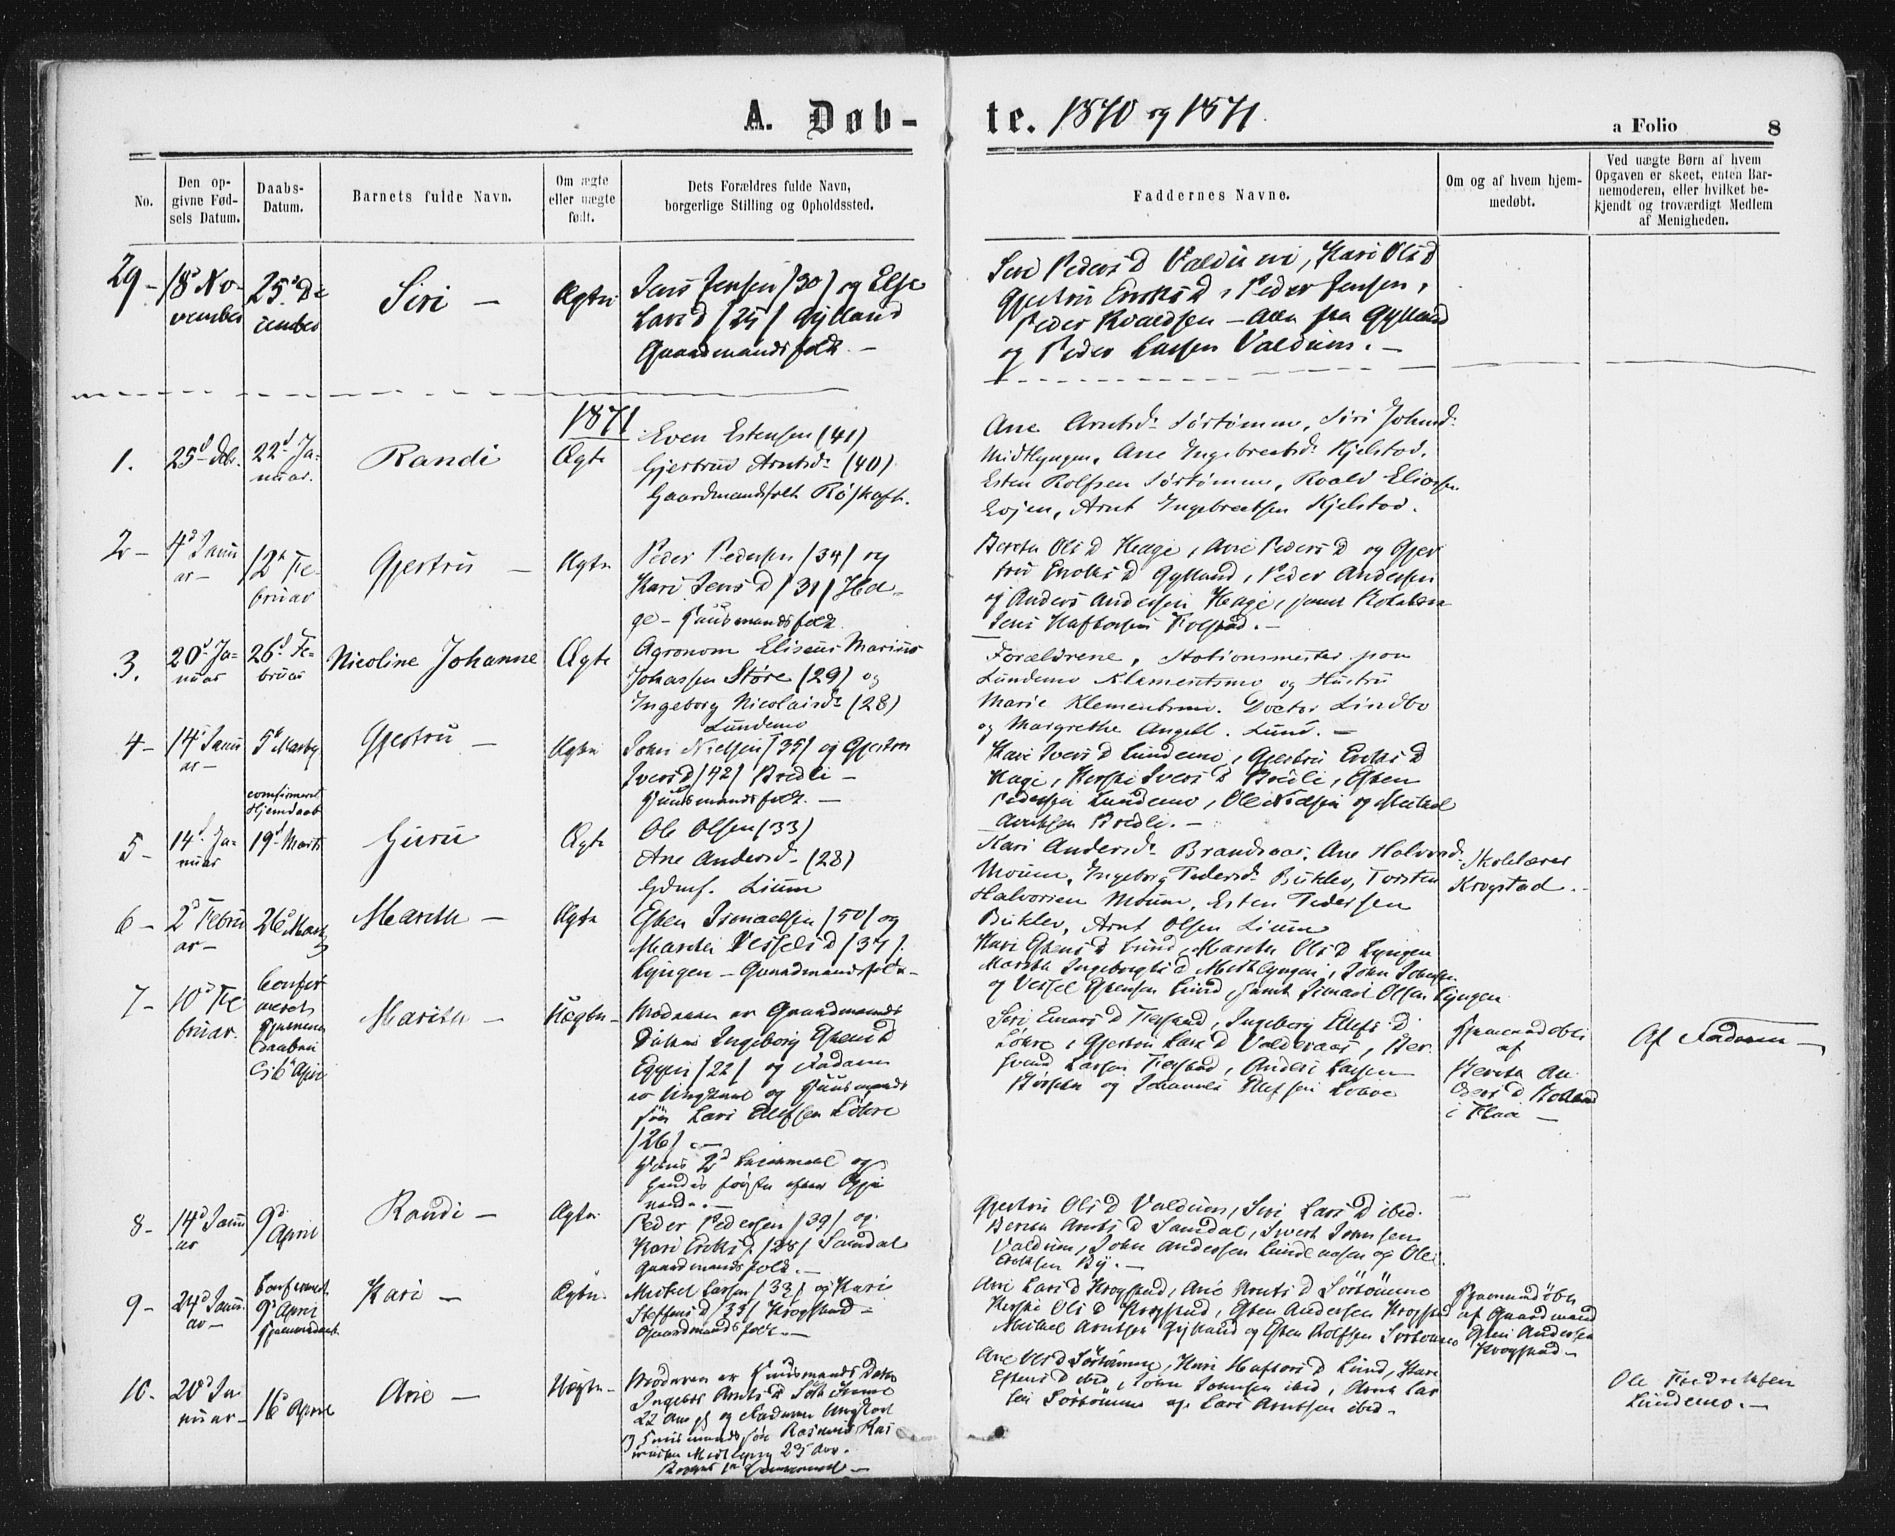 A. Døb-
te. 1870 og 1871.
a Folio 8
No.
Den op-
givne Fød-
sels Datum.
Daabs-
Datum.
Barnets fulde Navn.
Om ægte
eller uægte
født.
Dets Forældres fulde Navn,
borgerlige Stilling og Opholdssted.
Faddernes Navne.
Om og af hvem hjem-
medøbt.
Ved uægte Børn af hvem
Opgaven er skeet, enten Bar-
nemoderen, eller hvilket be-
kjendt og troværdigt Medlem
af Menigheden.
29 -
18d No-
vember
25d De
cember
Siri -
Ægte
Jens Jensen /30/ og Else
Larsd /25/ Gylland
Gaardmandsfolk. -
Siri Peders D Valdum, Kari Ols D
Gjertru Eriks D, Peder Jensen,
Peder Roaldsen - alle fra Gylland
og Peder Larsen Valdum. -
1871
1.
25d Dcbr.
22d Ja-
nuar.
Randi
Ægte
Even Estensen (41)
Gjertrud Arntsd. (40)
Gaardmandsfolk Røskaft.
Ane Arntsd. Sørtømme, Siri Johnsd.
Midtlyngen, Ane Ingebrectsd. Kjelstad,
Esten Rolfsen Sørtømme, Roald Eliassen
Evjen, Arnt Ingebrectsen Kjelstad.
2 -
4d Janu
ar -
12te Fe-
bruar
Gjertru -
Ægte
Peder Pedersen /34/ og
Kari Jens D /31/ Ha-
ge - Huusmandsfolk.
Beret Ols D Hage, Ane Peders D og Gjer
tru Eriks D Gylland, Peder Andersen
og Anders Andersen Hage, samt
Jens Haftorsen Folstad. -
3.
20d Ja-
nuar
26d Fe-
bruar
Nicoline Johanne
Ægte
Agronom Eliseus Marinus
Johassen Støre (29) og
Ingeborg Nicolaisd. (28)
Lundemo
Forældrene, Stationsmester paa
Lundemo Klementsmo og Hustru
Marie Klementsmo. Doctor Lindbo
og Margrethe Angell. Lund. -
4 -
14d Janu
ar -
5d Marts
Gjertru -
Ægte
John Nielsen /35/ og Gjertru
Ivers D /42/ Bredli -
Huusmandsfolk. -
Kari Ivers D Lundemo, Gjertru Eriks D
Hage, Ivers D Bredli, Esten
Pedersen Lundemo, Ole Nielsen og Mikal
Bredli. -
5 -
14d Ja-
nuar
comfirmeret
Hjemdaab
19d Marts
Guru
Ægte
Ole Olsen (33)
Ane Andersd. (28)
Gdmf. Lium
Kari Andersd. Brandsaas, Ane Halvorsd.
Moum, Ingeborg Pedersd. Buklev, Torsten
Halvorsen Moum, Esten Pedersen
Buklev, Arnt Olsen Lium
Skolelærer
Krogstad.
6 -
2d Febru
ar -
26d Marts
Marith -
Ægte
Esten Ismaelsen /50/ og
Marith Vessels D /37/
Lyngen - Gaardmandsfolk -
Kari Estens D Lund, Marith Ols D Lyngen
Marith Ingebrigts D Midtlyngen, John Johnsen
og Vessel Estensen Lund, samt Ismael Olsen Lyngen
7 -
10d Fe
bruar.
Confir
meret
Hjemme
daaben
6d April
Marith -
Uægte -
Moderen er Gaardmands
Datter Ingeborg Estens D
Eggen /22/ og Faderen
er Ungkarl og Huusmands
søn Lars Ellefsen Løhre
/26/. -
Hans 2d Leiermaal og
hendes første efter Opgi
vende. -
Siri Einars D Folstad, Ingeborg Ellefs D
Løhre, Gjertru Lars D Valderaas,
Larsen Folstad, Anders Larsen
og Johannes Ellefsen Løhre
Hjemmedøbt
af
Berith An
ders D
i Flaa -
Af Faderen -
8 -
14d Janu
ar
9d
April
Randi -
Ægte
Peder Pedersen /39/ og
Kari Eriks D. /28/ Samdal
Gaardmandsfolk. -
Gjertru Ols D Valdum, Siri Lars D ibid.
Berith Arnts D Samdal, Sivert Johnsen
Valdum, John Andersen Lundeaasen og Ole
Eriksen By. -
9 -
24d Janu
ar -
Confirmert
9d April
Hjemmedaab.
Kari -
Ægte.
Mikkel Larsen /33/ og Kari
Steffens D /33/ Krogstad -
Gaardmandsfolk. -
Ane Lars D Krogstad, Ane Arnts D Sørtømme
Ols D Krogstad, Esten Andersen Krogstad
Mikkel Arntsen Gylland og Esten Rolfsen Sørtømme
Hjemmedøbt
af Gaardmand
Esten Andersen
Krogstad -
10.
20d Ja
nuar -
16d April
Ane -
Uægte -
Moderen er Huusmands Datter
Ingeborg Arnts D
22 Aar gl. og Faderen Ungkarl
og Huusmandssøn Rasmus Ras
mussen Midtlyng 23 Aar.
Begges 1ste Leiermaal -
Ane Ols D Sørtømme, Kari Haftors D Lund, Kari
Estens D ibid, John Johnsen ibid, Arnt Lar
sen Sørtømme og Lars Arntsen ibid.
Ole Fredriksen
Lundemo. -